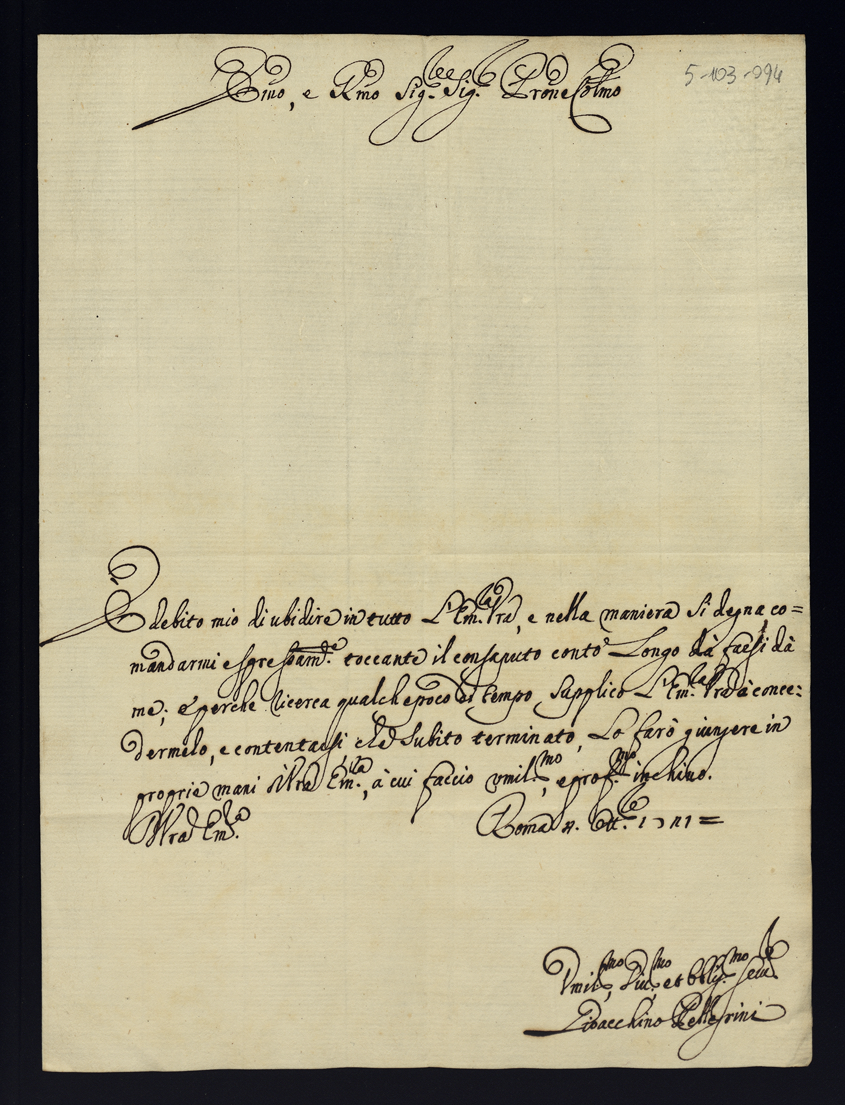 Emo, e Rmo Sig.re Sig.re Prone Colmo
5-103-094
È debito mio di ubidire in tutto L'Em.za Vra, e nella maniera si degna co=
mandarmi espressam.te toccante il consaputo conto Longo dà farsi dà
me; e perche ricerca qualche poco di tempo, supplico L'Em.za Vra à conce=
dermelo, e contentarsi che subito terminato, Lo farò giungere in
proprie mani di Vra Em.za, à cui faccio umil.mo, e prof.mo inchino.
Di Vra Em.za
Roma
Umil.mo, Div.mo, et Obblig.mo Serv.e
Gioacchino Pellegrini